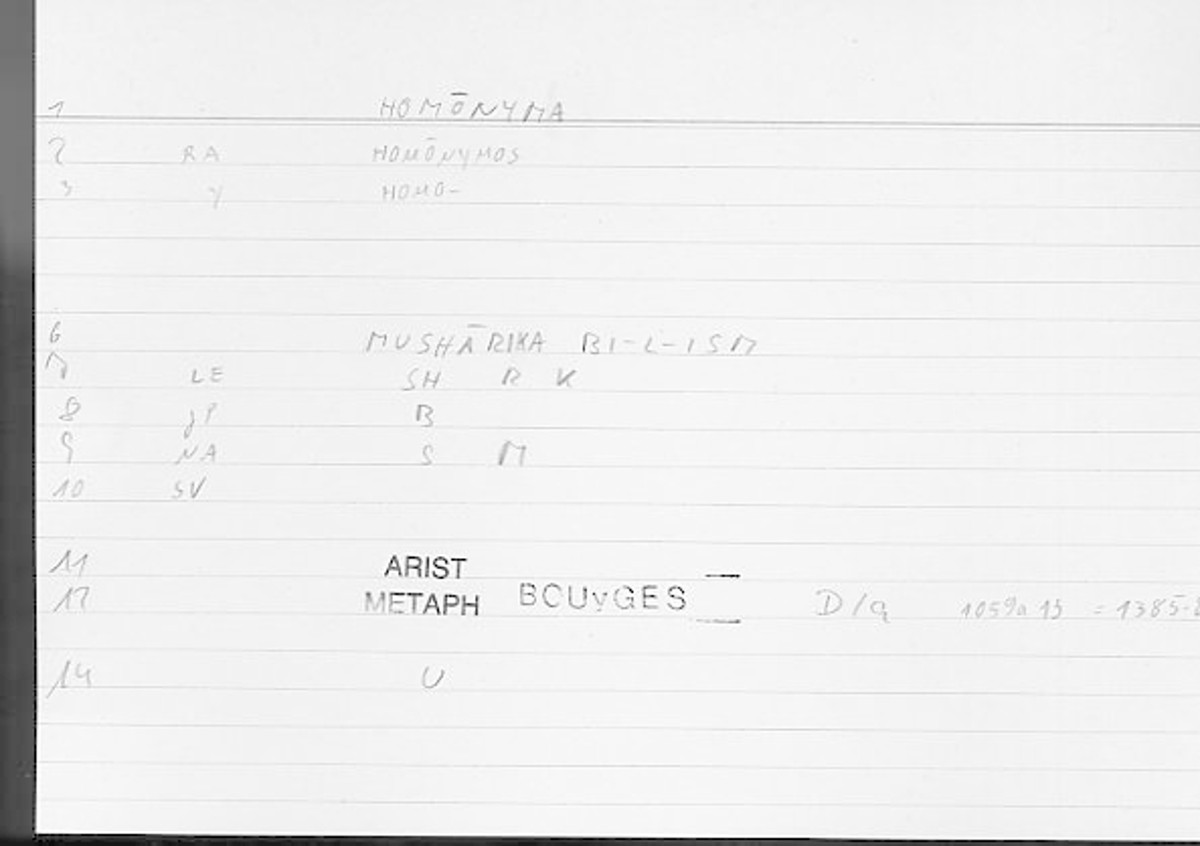 1 HOMŌNYMA
2 RA HOMŌNYMOS
3 Y HOMO-
6 MUSHĀRIKA BI-L-ISM
7 LE SH R K
8 JP B
9 NA S M
10 SV
11 ARIST
12 METAPH BOUyGES D/q 1059a 13 = 1385-
14 U